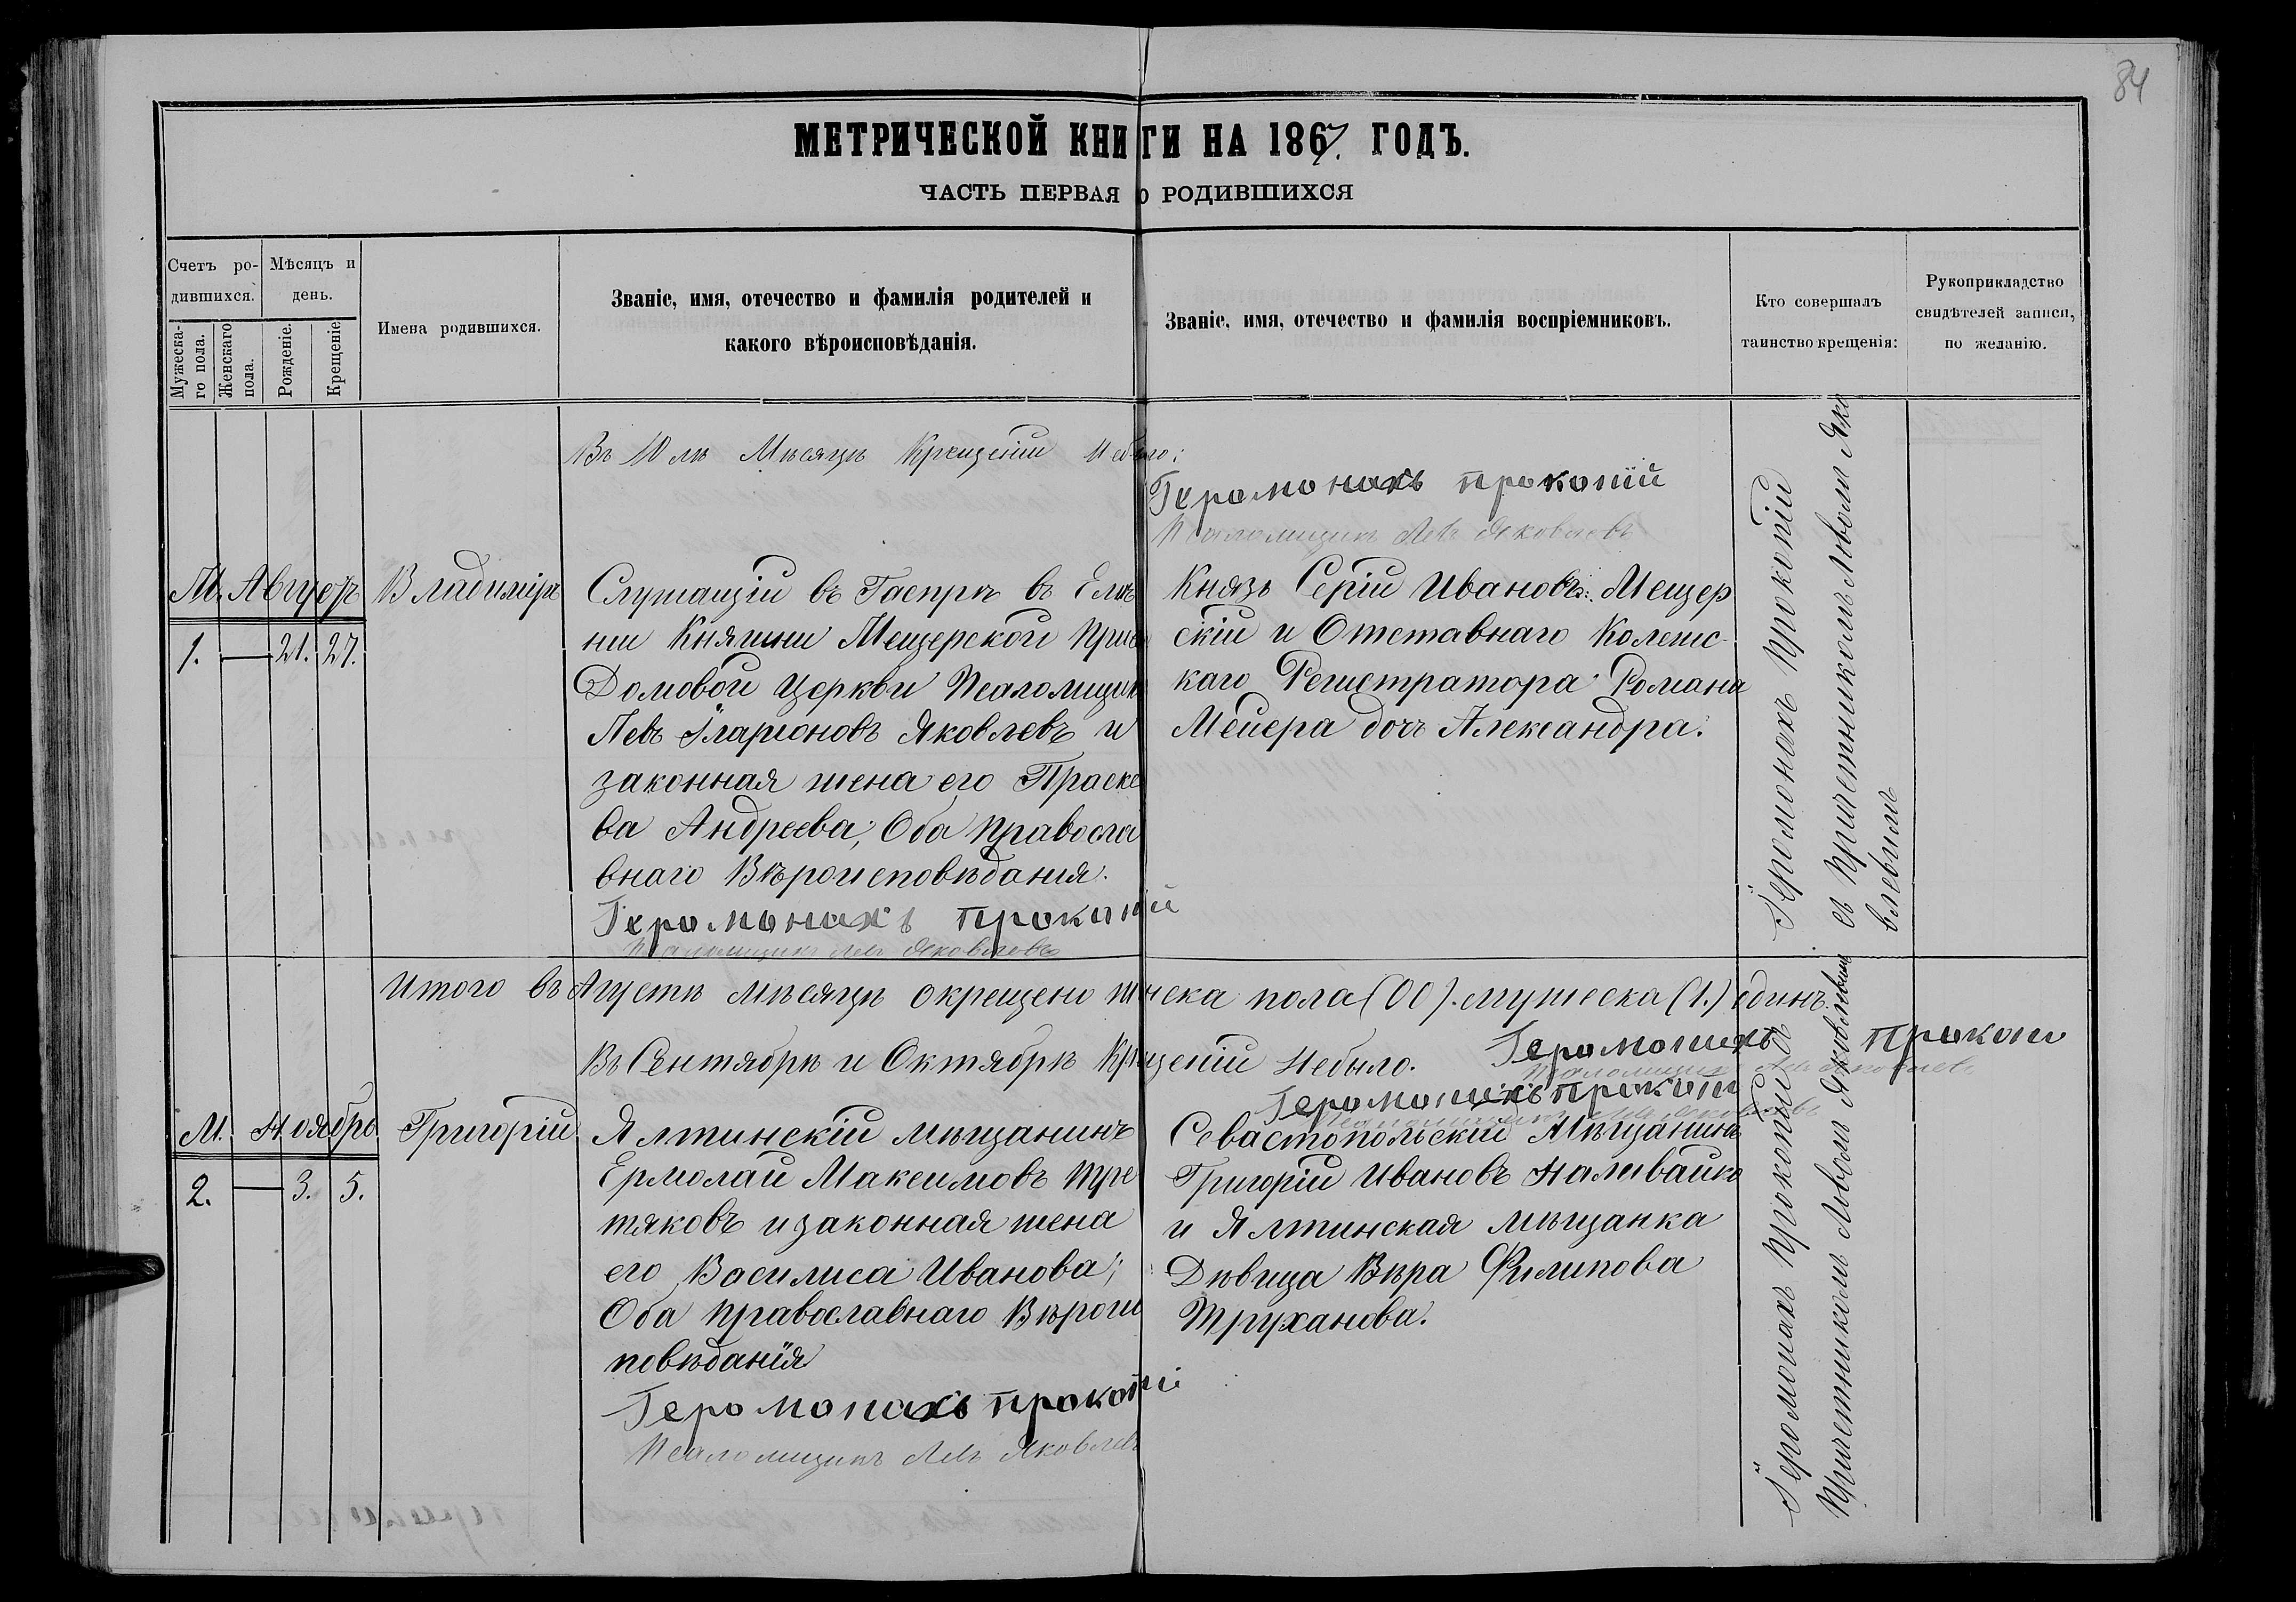 84
МЕТРИЧЕСКОЙ КНИГИ НА 1867. ГОДЪ.
ЧАСТЬ ПЕРВАЯ О РОДИВШИХСЯ
Счетъ ро-
дившихся.
Мужеска-
го пола.
Женскаго
пола.
Мѣсяцъ и
день.
Рожденіе.
Крещеніе
Имена родившихся.
Званіе, имя, отечество и фамилія родителей и
какого вѣроисповѣданія.
Званіе, имя, отечество и фамилія воспріемниковъ.
Кто совершалъ
таинство крещенія:
Рукоприкладство
свидѣтелей записи,
по желанію.
Въ Юлѣ Мѣсяцѣ Крещеніи Небыло:
Іеромонахъ прокопїй
Псаломщикъ Левъ Яковлевъ
М. Август
1. — 21. 27.
Владиміръ
Служащіи въ Гаспрѣ въ Имѣ
ніи Княгини Мещерской При
Домовой Церкви Псаломщикъ
Левъ Іларіоновъ Яковлевъ и
законная жена его Праске
ва Андреева; Оба Правосла
внаго Вѣроисповѣданія.
Іеромонахъ прокопій
Псаломщикъ Левъ Яковлевъ
Князь Сергіи Ивановъ: Мещер
скіи и Отставнаго Колежс-
каго Регистратора Романа
Мейера дочь Александра.
Іеромонахъ Прокопіи
съ Причетникомъ Львомъ Яко
влевымъ
Итого въ Августѣ мѣсяцѣ окрещено женска пола (00). мужеска (1.) единъ.
Іеромонахъ Прокопи
Псаломщикъ Левъ Яковлевъ
Въ Сентябрѣ и Октябрѣ Крещеніи Небыло.
Іеромонахъ прокопи
Псаломщикъ Левъ Яковлевъ
М. Ноябрь
2. — 3. 5.
Григоріи
Ялтинскіи мѣщанинъ
Ермолаи Максимовъ Тре
тяковъ и законная жена
его Василиса Иванова;
Оба Православнаго Вѣроис
повѣданїя
Іеромонахъ прокопіі
Псаломщикъ Левъ Яковлевъ
Севастопольскіи Мѣщанинъ
Григоріи Ивановъ Наливайко
и Ялтинская мѣщанка
Дѣвица Вѣра Филипова
Труханова.
Іеромонахъ Прокопіи съ
Причетникомъ Львомъ Яковлевымъ